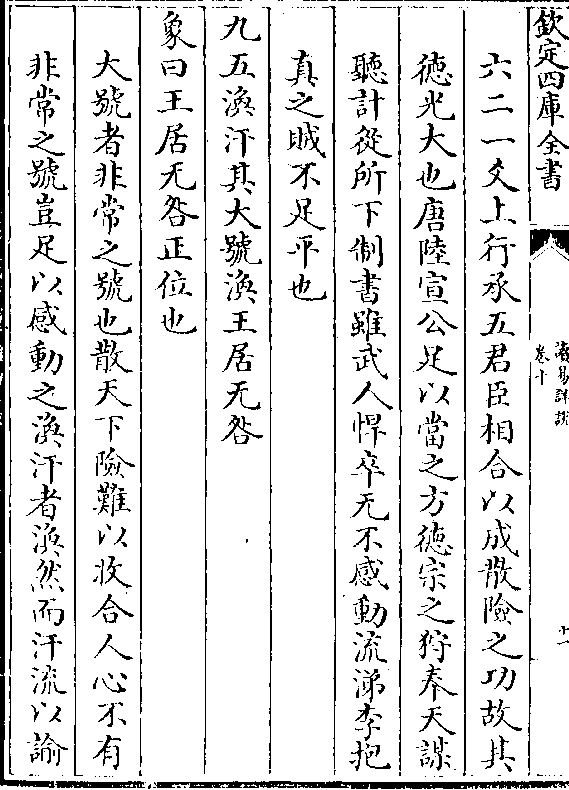 欽定四庫全書
讀易詳說
卷十
十一
六二一爻上行承五君臣相合以成散險之功故其
德光大也唐陸宣公足以當之方德宗之狩奉天謀
聽計從所下制書雖武人悍卒无不感動流涕李抱
真之賊不足平也
九五渙汗其大號渙王居无咎
象曰王居无咎正位也
大號者非常之號也散天下險難以收合人心不有
非常之號豈足以感動之渙汗者渙然而汗流以諭